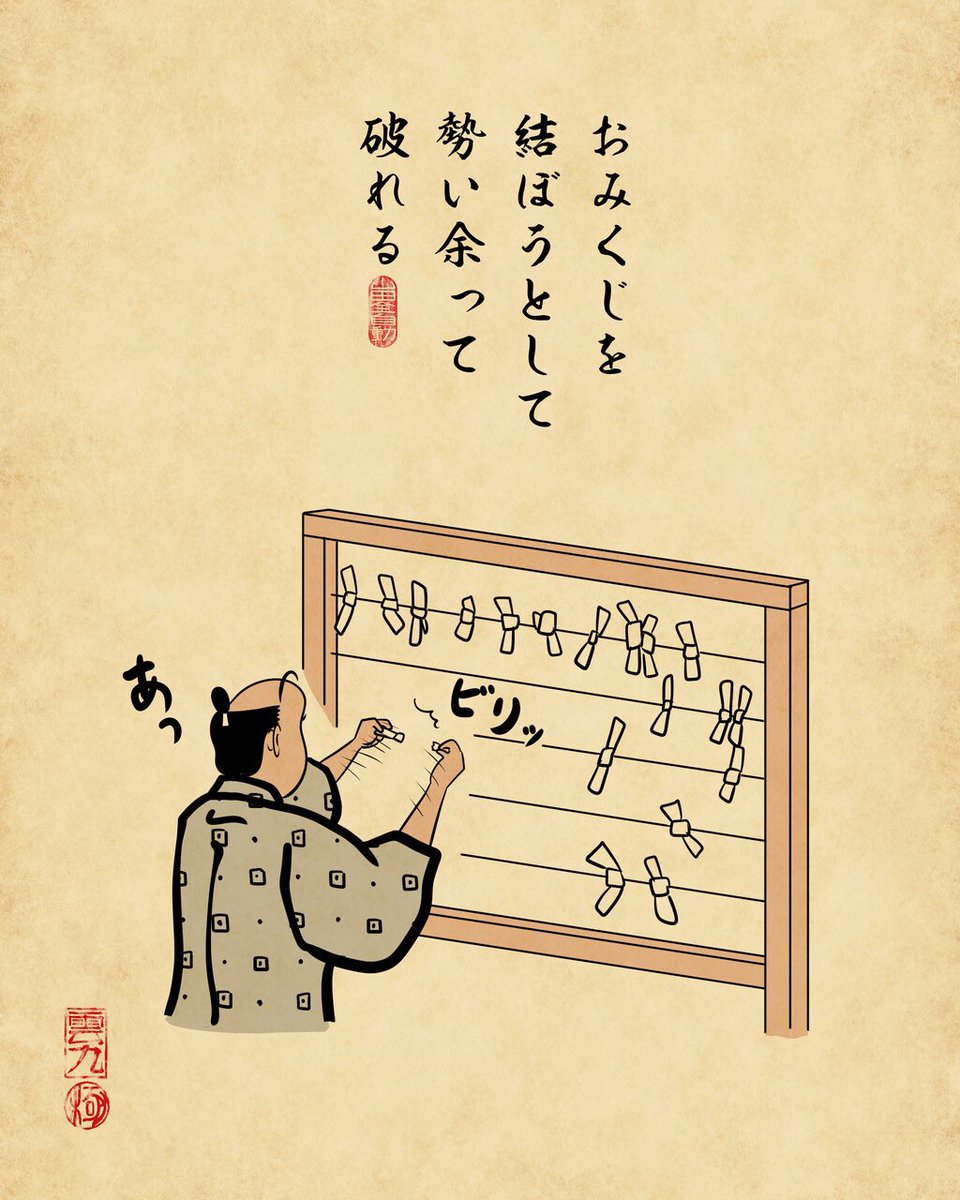 おみくじを
結ぼうとして
勢い余って
破れる
あっ
ビリッ